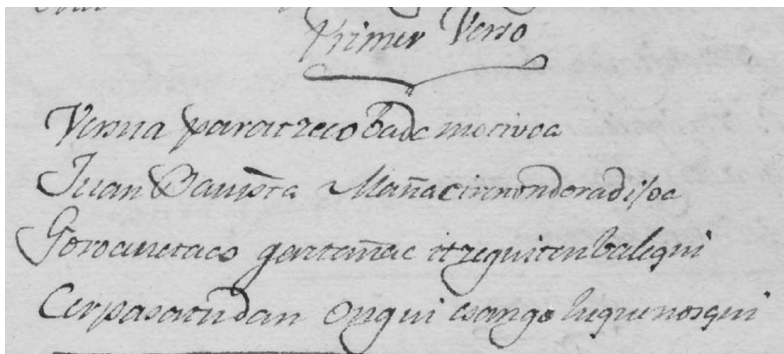 Primer Verso
Versua paratzeco bada motivoa
Juan Bauista Mañac cinnonderadisoa
Goroanetaco gertaerac itzeguiten balequi
Cerpasatudan ongui esango luquenosqui